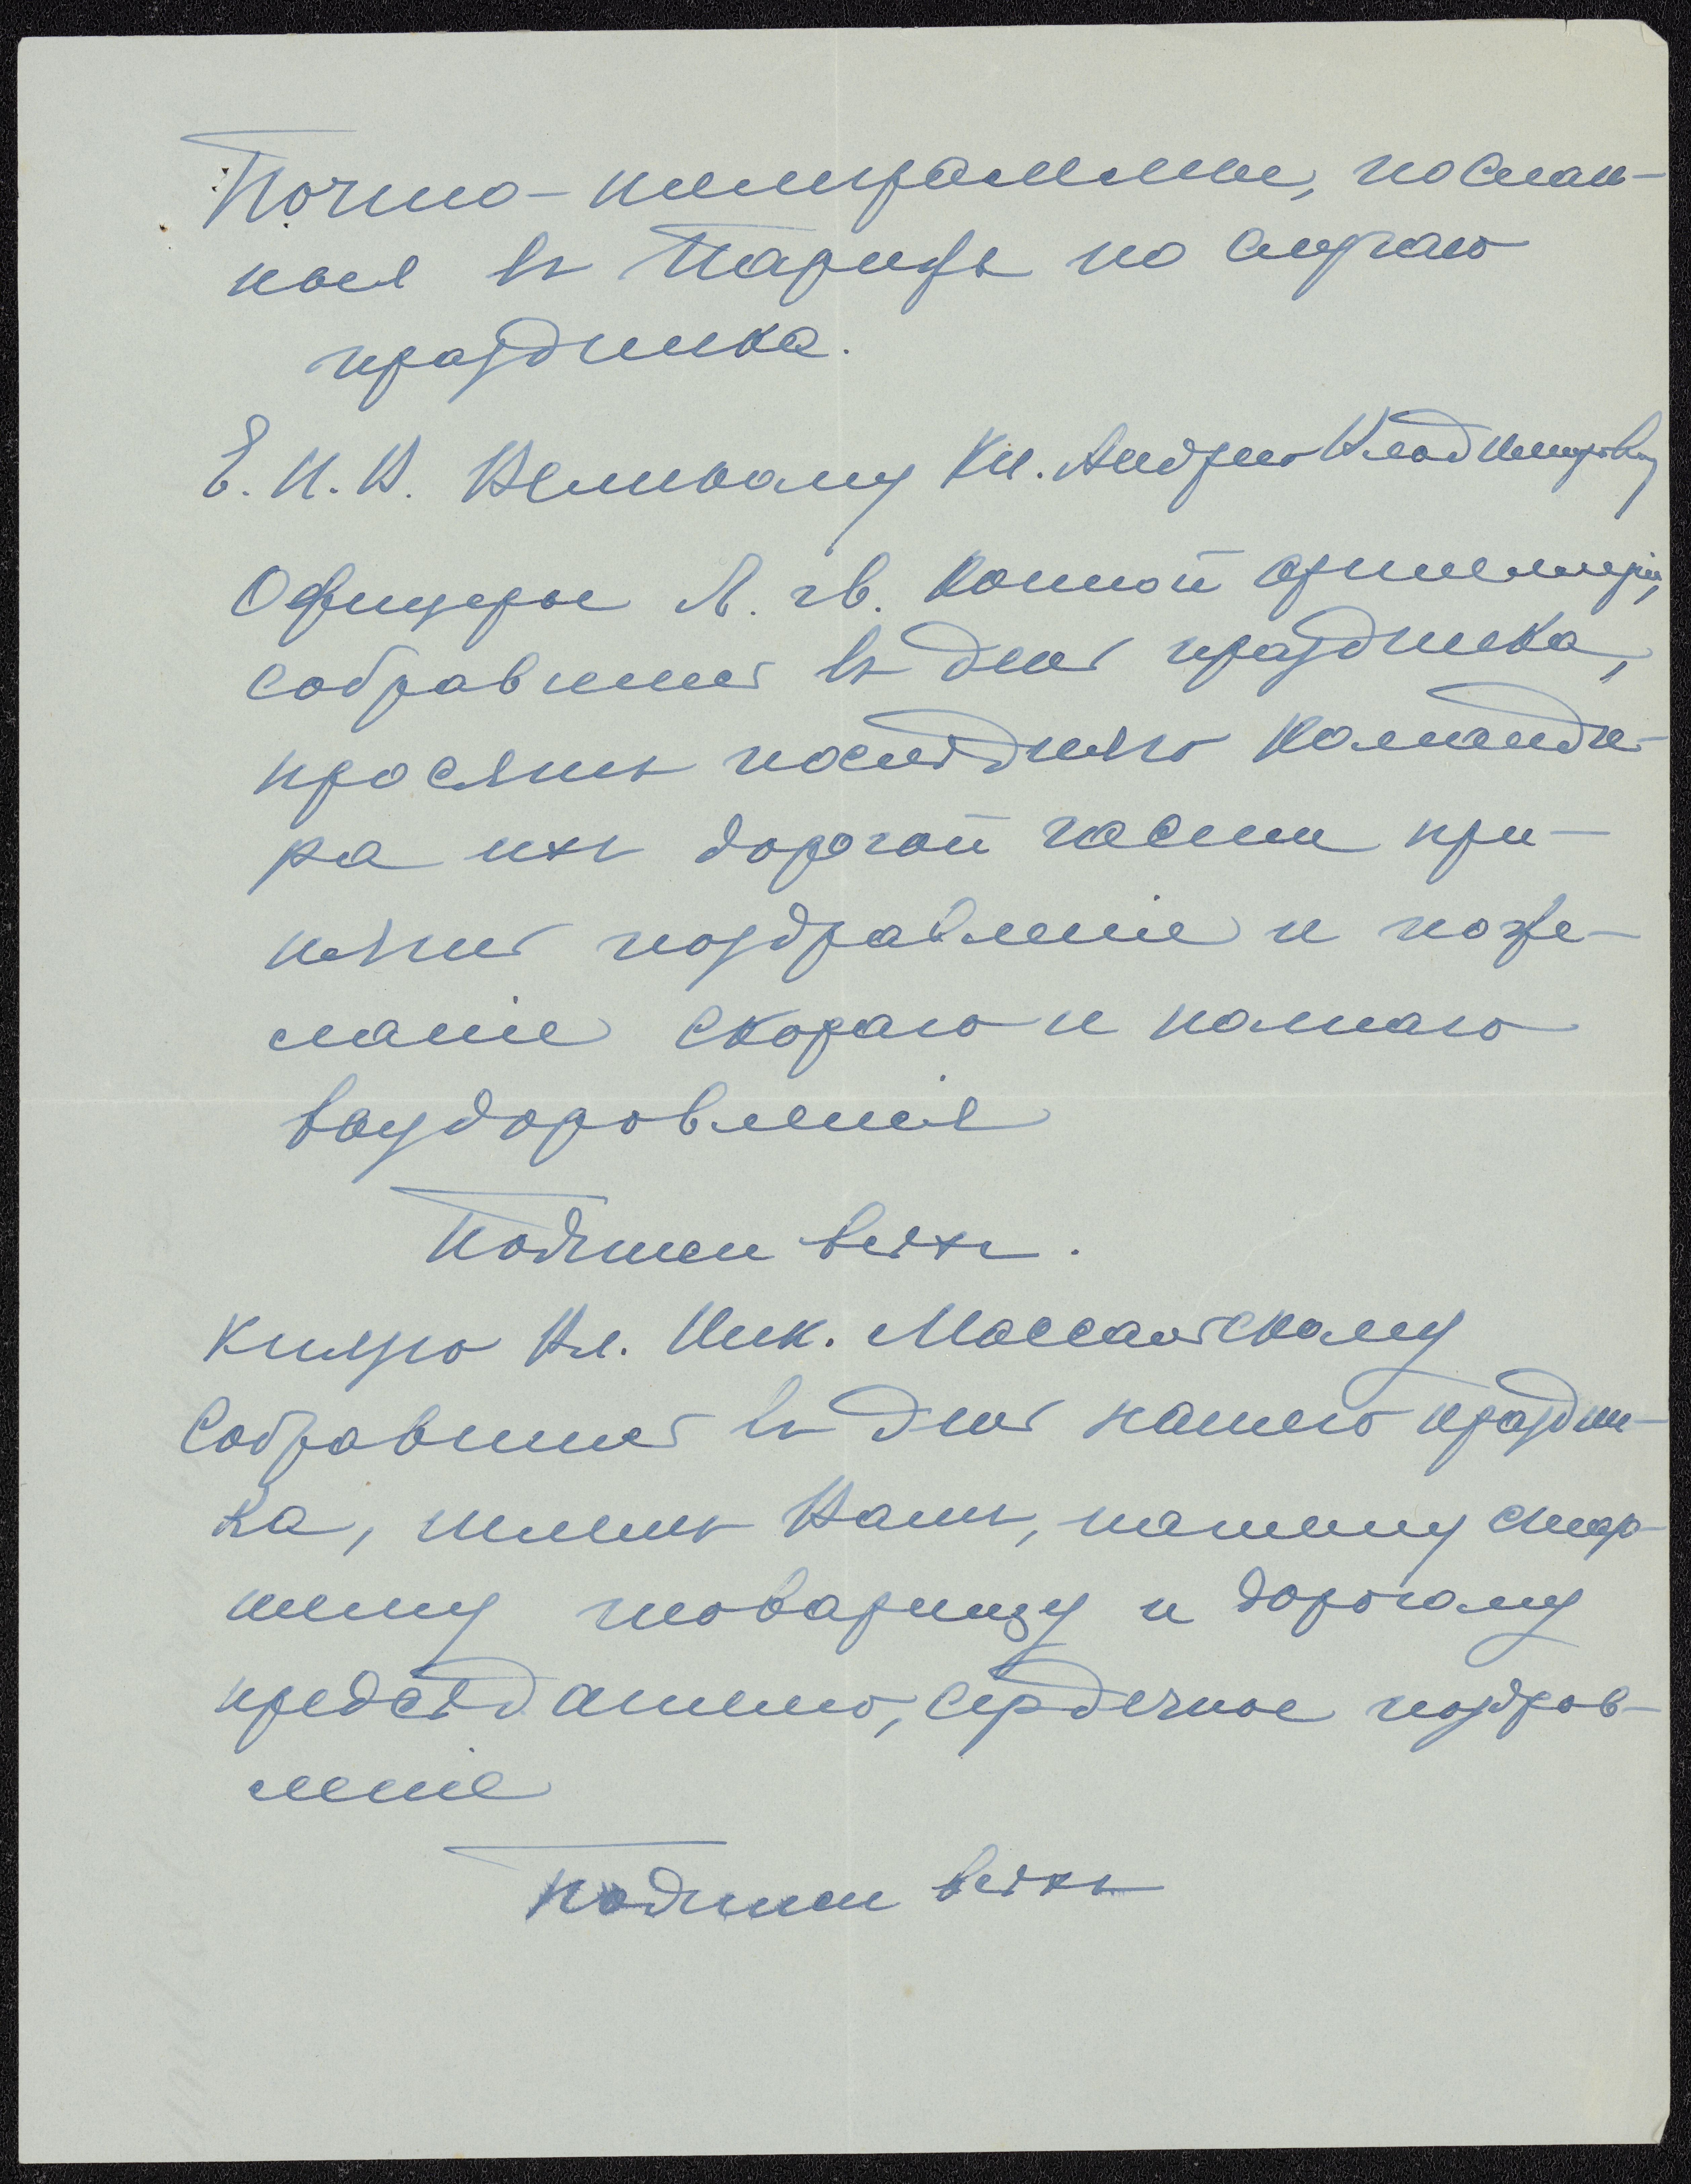 Почто-телеграммы, послан-
ныя въ Парижъ по случаю
праздника.
Е. И. В. Великому Кн. Андрею Владимировичу
Офицеры Л. гв. Конной артиллеріи,
собравшись въ день праздника,
просятъ послѣдняго командѝ-
ра ихъ дорогой части при-
нять поздравленіе и поже-
ланіе скораго и полнаго
выздоровленія
Подписи всѣхъ.
Князю Вл. Ник. Массальскому
Собравшись въ день нашего праздни-
ка, шлемъ Вамъ, нашему стар-
шему товарищу и дорогому
предсѣдателю, сердечное поздрав-
леніе
Подписи всѣхъ